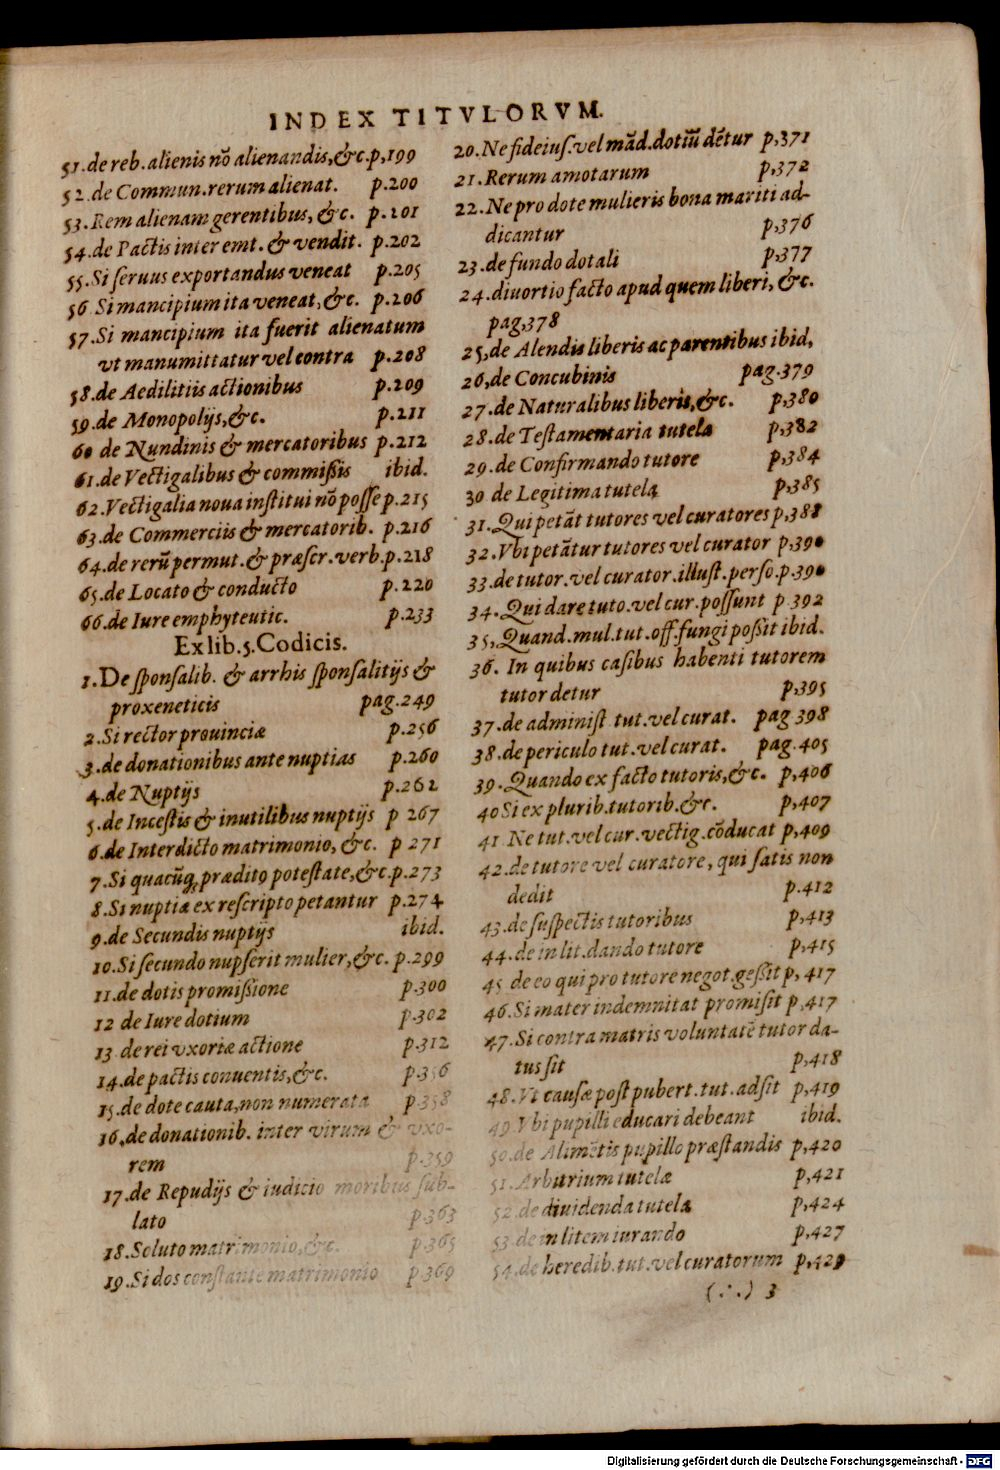 INDEX TITVLORVM.
51.de reb. alienis nõ alienandis,&c.p,199
52.de Commun.rerum alienat. p.200
53.Rem alienam gerentibus, &c. p.201
54.de Pactis inter emt. & vendit. p.202
55.Si seruus exportandus veneat p.205
56 Si mancipium ita veneat,&c. p.206
57.Si mancipium ita fuerit alienatum
vt manumittatur vel contra p.208
58.de Aedilitiis actionibus p.209
59.de Monopolijs,&c. p.211
60 de Nundinis & mercatoribus p.212
61.de Vectigalibus & commißis ibid.
62.Vectigalia noua institui nõ posse p.215
63.de Commerciis & mercatorib. p.216
64.de rerũ permut.& præscr.verb.p.218
65.de Locato & conducto p.220
66.de Iure emphyteutic. p.233
Ex lib.5.Codicis.
1.De sponsalib. & arrhis sponsalitijs &
proxeneticis pag.249
2.Si rector prouinciæ p.256
3.de donationibus ante nuptias p.260
4.de Nuptijs p.262
5.de Incestis & inutilibus nuptijs p 267
6.de Interdicto matrimonio, &c. p 271
7.Si quacũq; prædito potestate,&c.p.273
8.Si nuptiæ ex rescripto petantur p.274
9.de Secundis nuptijs ibid.
10.Si secundo nupserit mulier,&c. p.299
11.de dotis promißione p.300
12 de Iure dotium p.302
13 de rei vxoriæ actione p.312
14.de pactis conuentis,&c. p.356
15.de dote cauta,non numerata p.358
16,de donationib. inter virum & vxo-
rem p.359
17.de Repudijs & iudicio moribus sub-
lato p.363
18.Soluto matrimonio,&c. p.365
19.Si dos constante matrimonio p.369
20.Ne fideius.vel mãd.dotiũ dẽtur p,371
21.Rerum amotarum p,372
22.Ne pro dote mulieris bona mariti ad-
dicantur p,376
23.de fundo dotali p,377
24.diuortio facto apud quem liberi, &c.
pag,378
25,de Alendis liberis ac parentibus ibid,
26,de Concubinis pag.379
27.de Naturalibus liberis,&c. p,380
28.de Testamentaria tutela p,382
29.de Confirmando tutore p,384
30 de Legitima tutela p,385
31.Qui petãt tutores vel curatores p,388
32.Vbi petãtur tutores vel curator p.390
33.de tutor.vel curator.illust.perso.p.390
34.Qui dare tuto.vel cur.possunt p 392
35,Quand.mul.tut.off.fungi poßit ibid.
36. In quibus casibus habenti tutorem
tutor detur p,395
37.de administ tut.vel curat. pag 398
38.de periculo tut.vel curat. pag.405
39.Quando ex facto tutoris,&c. p,406
40 Si ex plurib.tutorib.&c. p,407
41 Ne tut.vel cur.vectig.cõducat p,409
42.de tutore vel curatore, qui satis non
dedit p.412
43.de suspectis tutoribus p,413
44.de in lit.dando tutore p,415
45 de eo qui pro tutore negot.geßit p, 417
46.Si mater indemnitat promisit p,417
47.Si contra matris voluntatẽ tutor da-
tus sit p,418
48.Vt causæ post pubert.tut.adsit p,419
49 Vbi pupilli educari debeant ibid.
50.de Alimẽtis pupillo præstandis p,420
51.Arbitrium tutelæ p,421
52.de diuidenda tutela p,424
53 de in litem iurando p,427
54.de heredib.tut.vel curatorum p,429
(.·.) 3
Digitalisierung gefördert durch die Deutsche Forschungsgemeinschaft - DFG